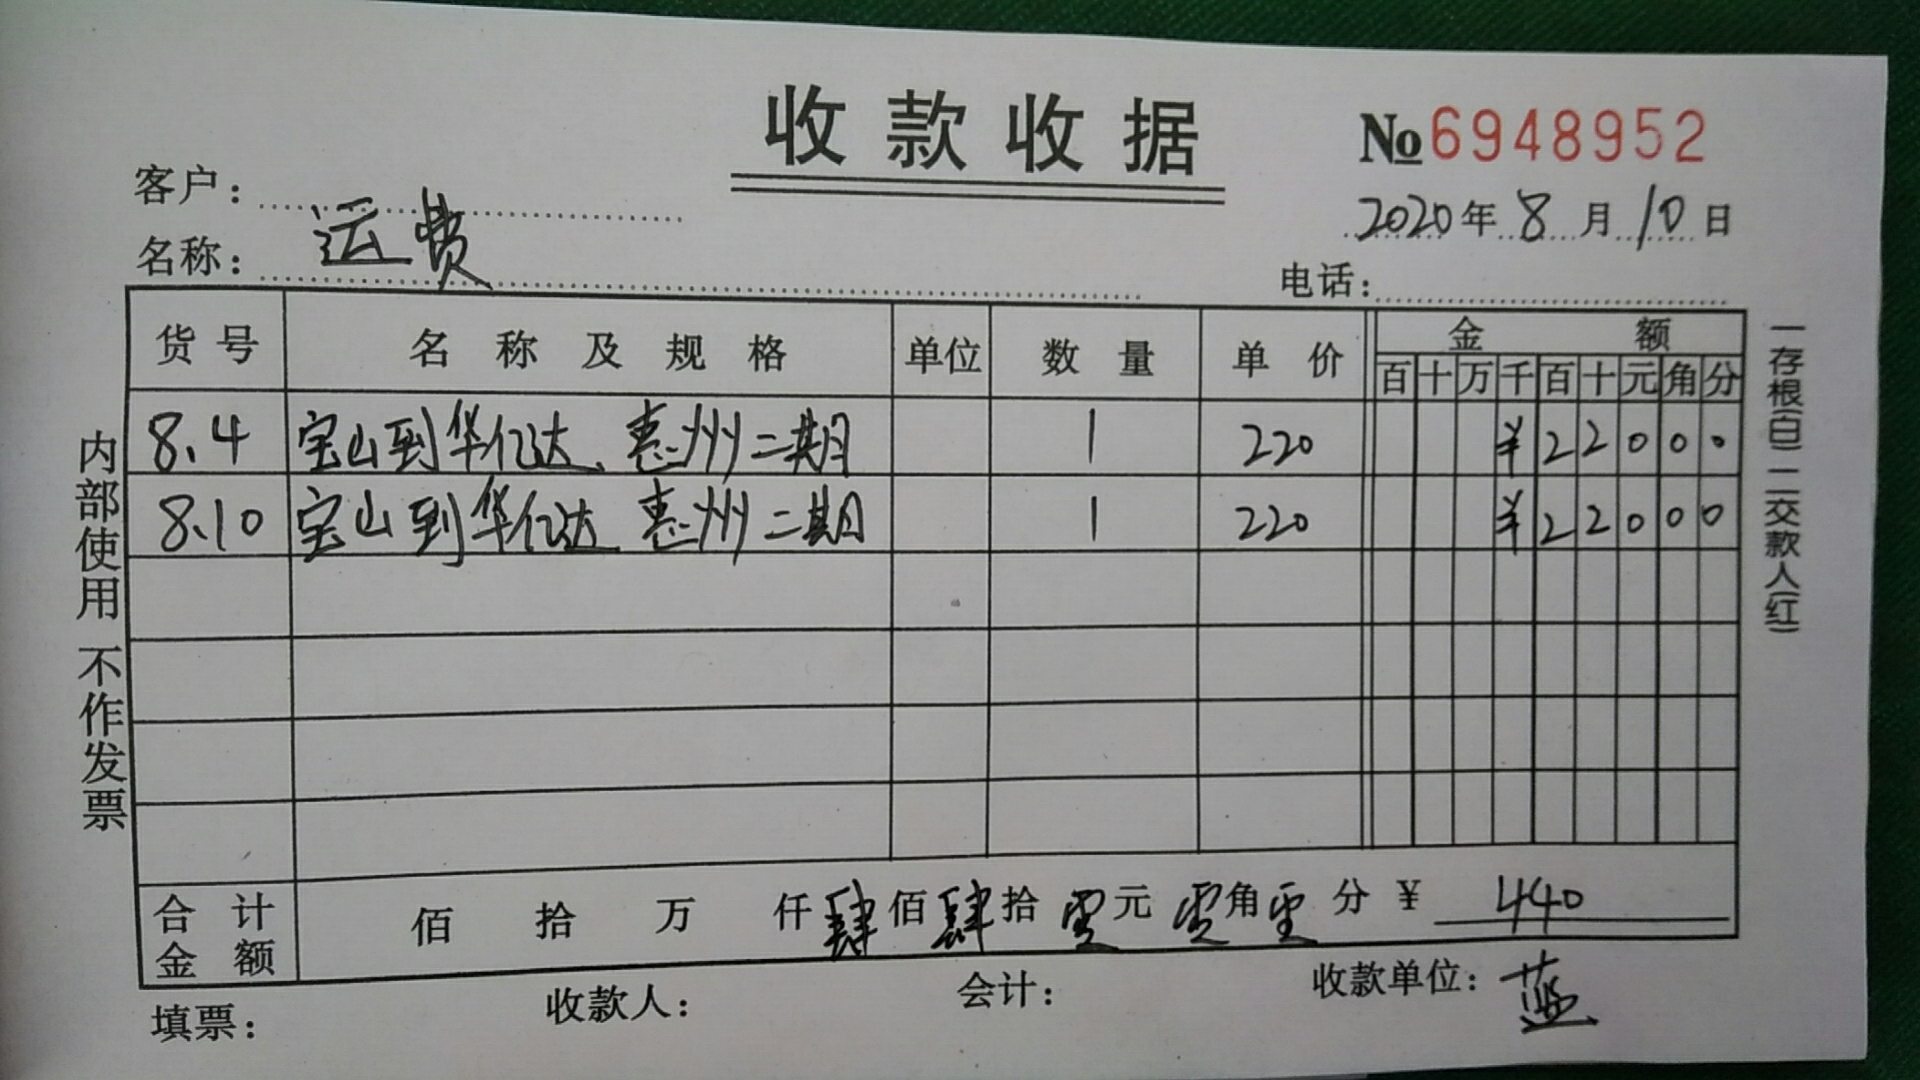 收款收据
No 6948952
客户：
2020年8月10日
名称：运费
电话：
货号 名称及规格 单位 数量 单价 金额
百十万千百十元角分
8.4 宝山到华亿达、惠州二期 1 220 ¥22000
8.10 宝山到华亿达 惠州二期 1 220 ¥22000
合计金额 佰 拾 万 仟肆佰肆拾零元零角零分 ¥ 440
填票： 收款人： 会计： 收款单位：蓝
内部使用 不作发票
一存根(白)二交款人(红)